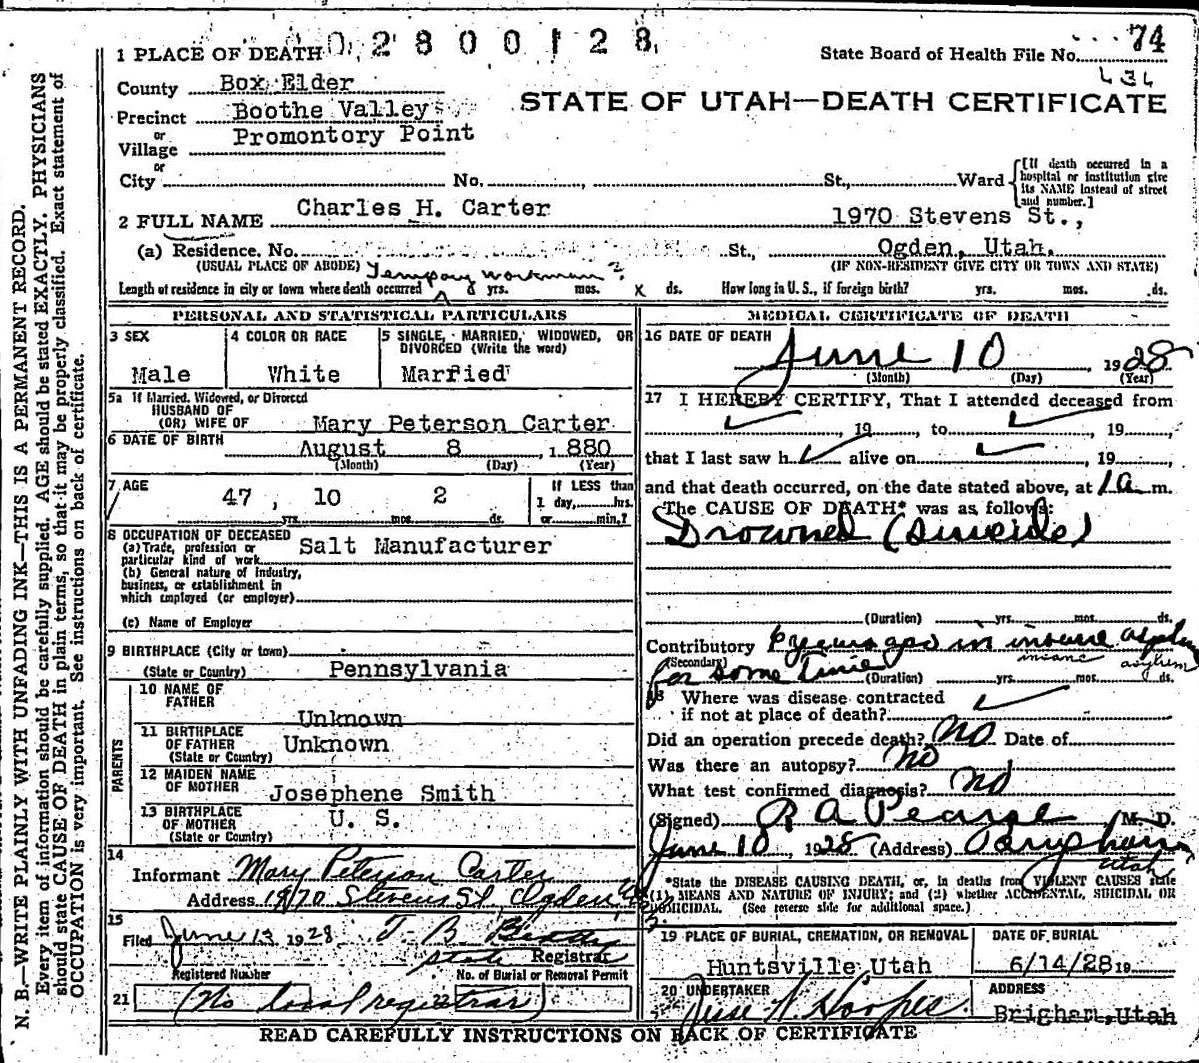 0 2 8 0 0 1 2 8
74
1 PLACE OF DEATH
State Board of Health File No.
434
County Box Elder
STATE OF UTAH—DEATH CERTIFICATE
Precinct Boothe Valley
or
Village Promontory Point
or
City No. St., Ward
[If death occurred in a hospital or institution give its NAME instead of street and number.]
2 FULL NAME Charles H. Carter
1970 Stevens St.,
(a) Residence. No. St., Ogden, Utah.
(USUAL PLACE OF ABODE) (IF NON-RESIDENT GIVE CITY OR TOWN AND STATE)
Tempory workman ?
Length of residence in city or town where death occurred yrs. mos. x ds. How long in U. S., if foreign birth? yrs. mos. ds.
PERSONAL AND STATISTICAL PARTICULARS
3 SEX
Male
4 COLOR OR RACE
White
5 SINGLE, MARRIED, WIDOWED, OR DIVORCED (Write the word)
Married
5a If Married, Widowed, or Divorced
HUSBAND OF
(OR) WIFE OF Mary Peterson Carter
6 DATE OF BIRTH August 8, 1880
(Month) (Day) (Year)
7 AGE
47, 10 2
yrs. mos. ds.
If LESS than
1 day, hrs.
or min.?
8 OCCUPATION OF DECEASED
(a) Trade, profession or
particular kind of work Salt Manufacturer
(b) General nature of industry,
business, or establishment in
which employed (or employer)
(c) Name of Employer
9 BIRTHPLACE (City or town)
(State or Country) Pennsylvania
PARENTS
10 NAME OF
FATHER Unknown
11 BIRTHPLACE
OF FATHER Unknown
(State or Country)
12 MAIDEN NAME
OF MOTHER Josephene Smith
13 BIRTHPLACE
OF MOTHER U. S.
(State or Country)
14
Informant Mary Peterson Carter
Address 1970 Stevens St, Ogden,
15
Filed June 13 1928 T. B. Beatty
State Registrar
Registered Number No. of Burial or Removal Permit
21 (No local registrar)
MEDICAL CERTIFICATE OF DEATH
16 DATE OF DEATH
June 10 1928
(Month) (Day) (Year)
17 I HEREBY CERTIFY, That I attended deceased from
, 19 , to , 19 ,
that I last saw h alive on , 19
and that death occurred, on the date stated above, at 1 a m.
The CAUSE OF DEATH* was as follows:
Drowned (Suicide)
(Duration) yrs. mos. ds.
Contributory 6 years ago in insane asylum
(Secondary) insane asylum
for some time (Duration) yrs. mos. ds.
18 Where was disease contracted
if not at place of death?
Did an operation precede death? No Date of
Was there an autopsy? No
What test confirmed diagnosis? No
(Signed) R A Pearse M. D.
June 10, 1928 (Address) Brigham
Utah
*State the DISEASE CAUSING DEATH, or, in deaths from VIOLENT CAUSES state
(1) MEANS AND NATURE OF INJURY; and (2) whether ACCIDENTAL, SUICIDAL OR
HOMICIDAL. (See reverse side for additional space.)
19 PLACE OF BURIAL, CREMATION, OR REMOVAL
Huntsville Utah
DATE OF BURIAL
6/14/28 19
20 UNDERTAKER
Jesse W Hoopes
ADDRESS
Brigham, Utah
READ CAREFULLY INSTRUCTIONS ON BACK OF CERTIFICATE
N. B.—WRITE PLAINLY WITH UNFADING INK—THIS IS A PERMANENT RECORD.
Every item of information should be carefully supplied. AGE should be stated EXACTLY. PHYSICIANS
should state CAUSE OF DEATH in plain terms, so that it may be properly classified. Exact statement of
OCCUPATION is very important. See instructions on back of certificate.